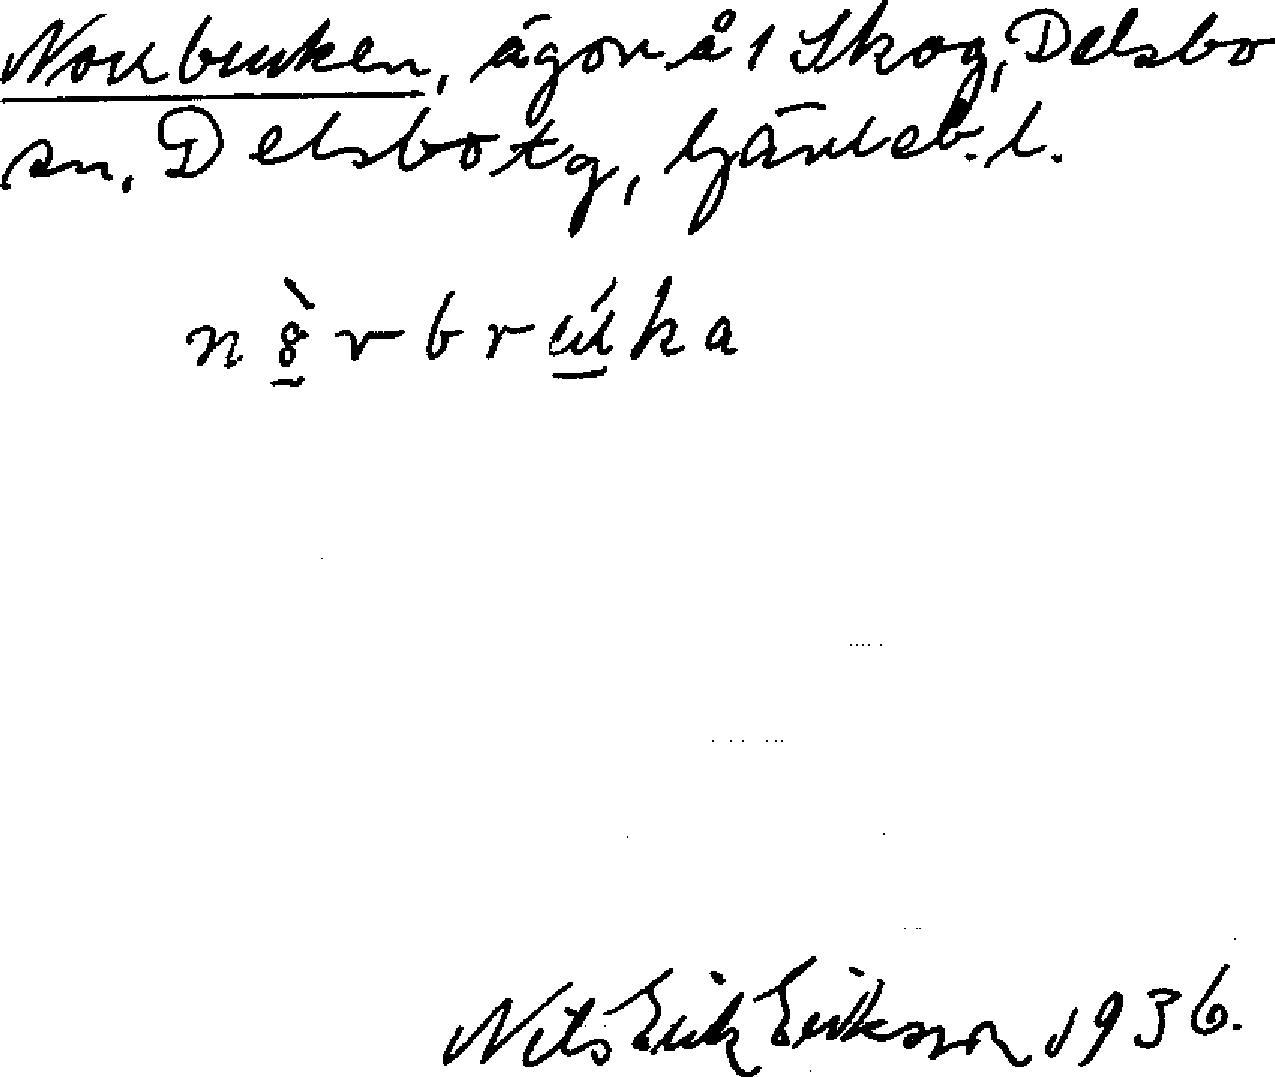 Norrbruken, ägor å 1 Skog, Delsbo
sn. Delsbo tg, Gävleb. l.
n8̠̀rbrúka
Nils Erik Eriksson 1936.